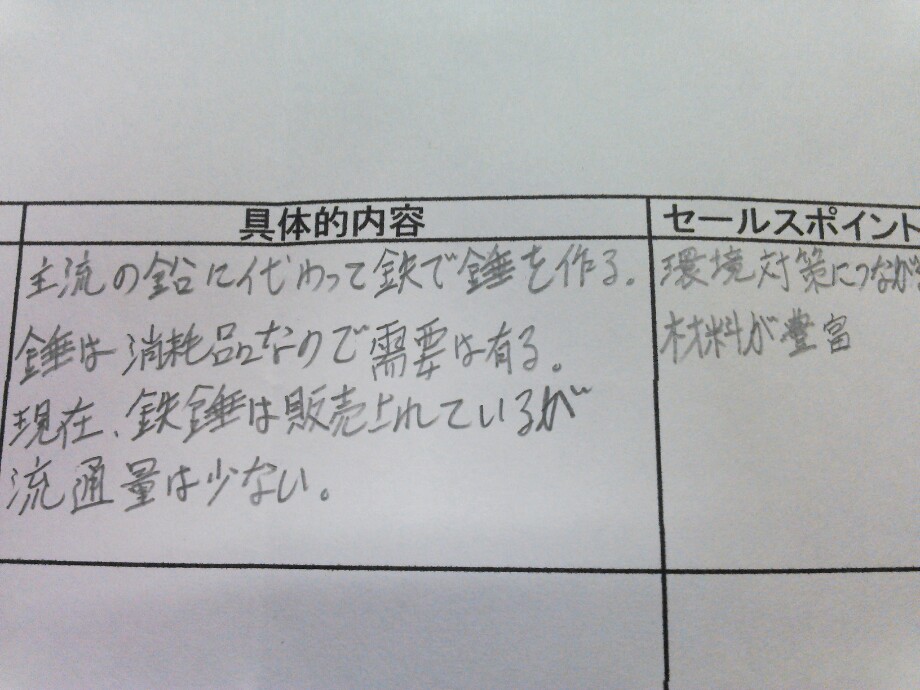 具体的内容
主流の鉛に代わって鉄で錘を作る。
錘は消耗品なので需要は有る。
現在、鉄錘は販売されているが
流通量は少ない。
セールスポイント
環境対策につなが
材料が豊富